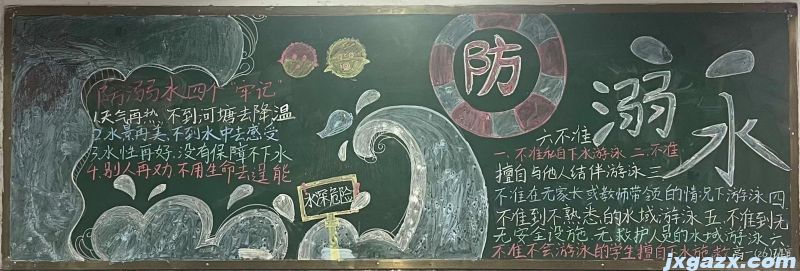 防溺水四个"牢记"
1.天气再热,不到河塘去降温
2.水景再美,不到水中去感受
3.水性再好,没有保障不下水
4.别人再劝,不用生命去逞能
水深危险
防
溺水
六不准
一、不准私自下水游泳 二、不准
擅自与他人结伴游泳 三、
不准在无家长或教师带领的情况下游泳 四
不准到不熟悉的水域游泳 五、不准到无
无安全设施、无救护人员的水域游泳 六
不准不会游泳的学生擅自下水施救
jxgazx.com